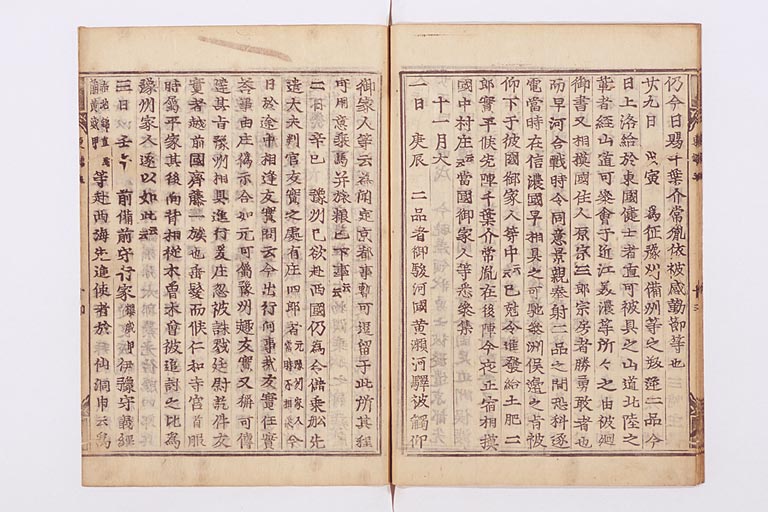 仍今日賜千葉介常胤依被感勤節等也
廿九日 戊寅 為征豫州備州等之叛逆二品今
日上洛給於東國健士者直可被具之山道北陸之
輩者經山道可參會于近江美濃等所々之由被廻
御書又相模國住人原宗三郎宗房者勝勇敢者也
而早河合戰時令同意景親奉射二品之間恐科逐
電當時在信濃國早相具之可馳參洲俣邊之旨被
仰下于彼國御家人等中云々已剋令進發給土肥二
郎實平候先陣千葉介常胤在後陣今夜止宿相摸
國中村庄云々當國御家人等悉參集
十一月大
一日 庚辰 二品着御駿河國黄瀬河驛被觸仰
御家人等云為聞定京都事暫可逗留于此所其程
可用意乘馬并旅粮已下事云々
二日 辛巳 豫州已欲赴西國仍為令儲乘舩先
遣大夫判官友實之處有庄四郎者元豫州家人當時不相從今
日於途中相逢友實問云今出行何事哉友實任實
荅事由庄僞示合如元可属豫州趣友實又稱可傳
達其旨豫州相具進行爰庄忽被誅戮廷尉訖件友
實者越前國齊藤一族也垂髮而候仁和寺宮首服
時屬平家其後向背相從木曽木曽被追討之比為
豫州家人遂以如此云々
三日 壬午 前備前守行家櫻威甲伊豫守義經
赤地錦直垂萠黄威甲等赴西海先進使者於仙洞申云為